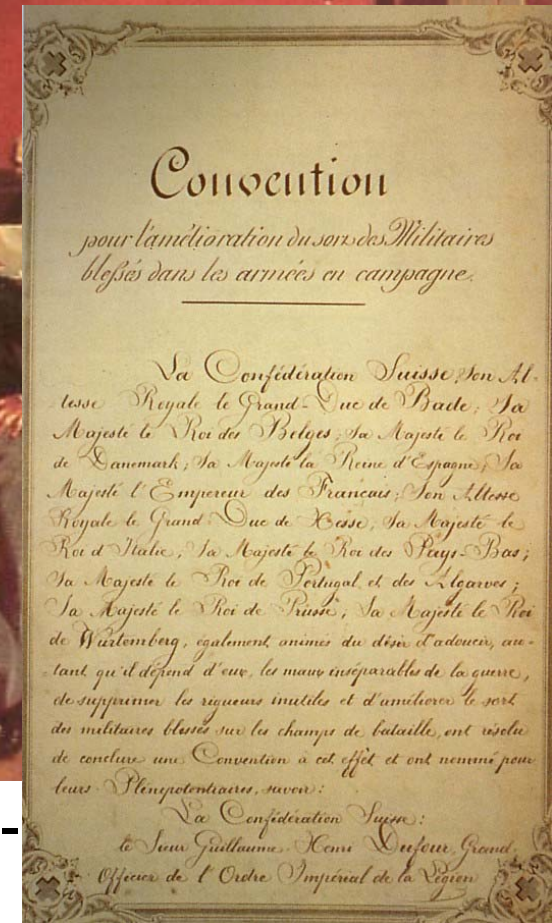 Convention
pour l'amélioration du sort des Militaires
blessés dans les armées en campagne.
La Confédération Suisse; Son Al-
tesse Royale le Grand-Duc de Bade; Sa
Majesté le Roi des Belges; Sa Majesté le Roi
de Danemark; Sa Majesté la Reine d'Espagne; Sa
Majesté l'Empereur des Français; Son Altesse
Royale le Grand-Duc de Hesse; Sa Majesté le
Roi d'Italie; Sa Majesté le Roi des Pays-Bas;
Sa Majesté le Roi de Portugal et des Algarves;
Sa Majesté le Roi de Prusse; Sa Majesté le Roi
de Würtemberg, également animés du désir d'adoucir, au-
tant qu'il dépend d'eux, les maux inséparables de la guerre,
de supprimer les rigueurs inutiles et d'améliorer le sort
des militaires blessés sur les champs de bataille, ont résolu
de conclure une Convention à cet effet et ont nommé pour
leurs Plénipotentiaires, savoir:
La Confédération Suisse:
le Sieur Guillaume-Henri Dufour, Grand
Officier de l'Ordre Impérial de la Légion
-